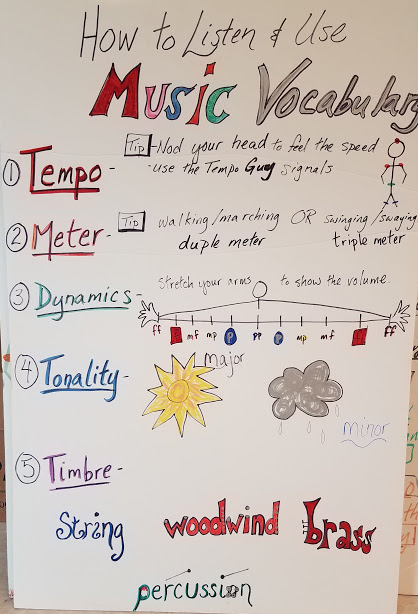 How to Listen & Use
Music Vocabulary
① Tempo - Tip -Nod your head to feel the speed
-use the Tempo Guy signals
② Meter- Tip walking/marching OR swinging/swaying
duple meter triple meter
③ Dynamics- stretch your arms to show the volume.
ff f mf mp p pp p mp mf f ff
④ Tonality- major
minor
⑤ Timbre-
String woodwind brass
percussion